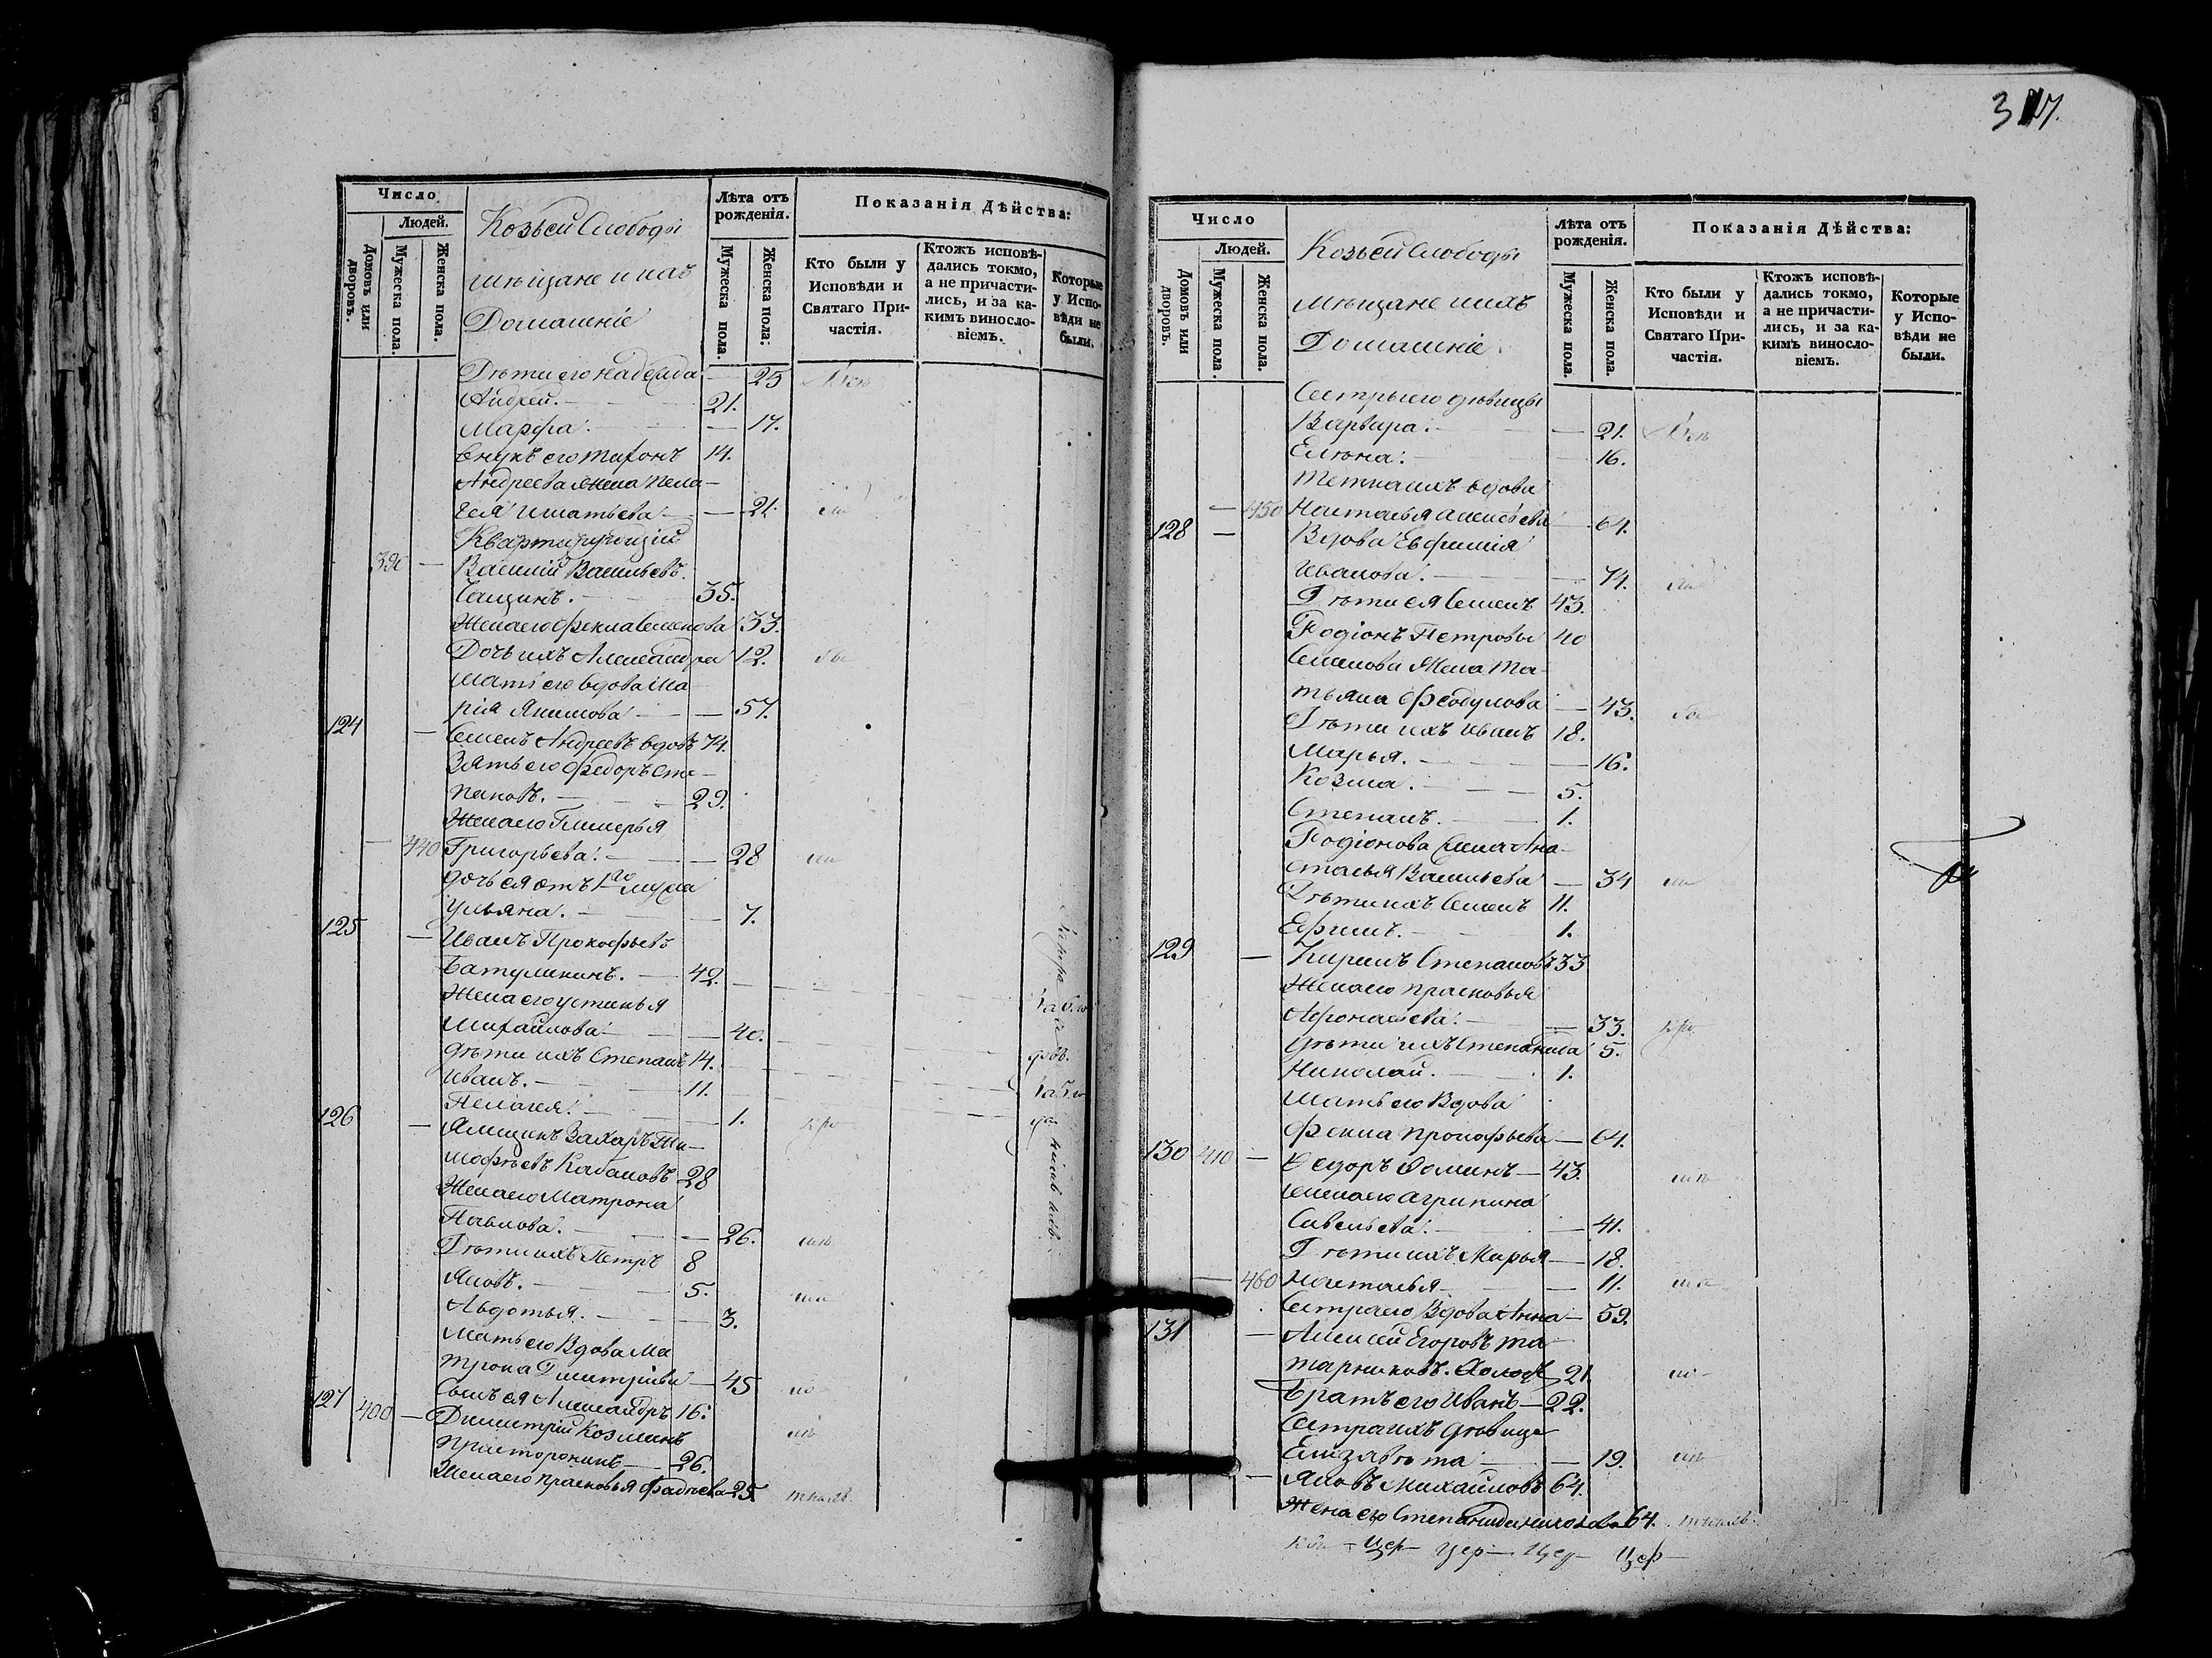 Число
Людей.
Домовъ или дворовъ.
Мужеска пола.
Женска пола.
Козьей Слободы
мѣщане и ихъ
Домашніе
Лѣта отъ рожденія.
Мужеска пола.
Женска пола:
Показанія Дѣйства:
Кто были у Исповѣди и Святаго Причастія.
Ктожъ исповѣдались токмо, а не причастились, и за какимъ винословіемъ.
Которые у Исповѣди не были.
Дѣти его Надежда — 25
Андрей. — 21.
Марфа. — 17.
Внукъ его Тихонъ 14.
Андреева жена Пела-
гея Игнатьева — 21.
Квартирующій
390 — Василій Васильевъ
Сащинъ. — 35.
Жена его Фекла Семенова 33.
Дочь ихъ Александра 12.
Мать его вдова Ма-
рія Якимова — 57.
124 — Семенъ Андреевъ вдовъ 74.
Зять его Федоръ Сте-
пановъ. — 29.
Жена его Гликерья
— 440 Григорьева. — 28
дочь ея отъ 1го мужа
Ульяна. — 7.
125 — Иванъ Прокофьевъ
Батулинъ. — 42.
Жена его Устинья
Михайлова — 40.
дѣти ихъ Степанъ 14.
Иванъ. — 11.
Пелагея. — 1.
126 — Ямщикъ Захаръ Ти-
мофѣевъ Кабановъ 28
Жена его Матрона
Павлова. — 26.
Дѣти ихъ Петръ 8
Яковъ. — 5.
Авдотья. — 3.
Мать его Вдова Ма
трона Дмитріева — 45
Сынъ ея Александръ 16.
127 400 — Димитрій Козминъ
26.
Жена его Прасковья Фадѣева 25.
317.
Число
Людей.
Домовъ или дворовъ.
Мужеска пола.
Женска пола.
Козьей Слободы
мѣщане и ихъ
Домашніе.
Лѣта отъ рожденія.
Мужеска пола.
Женска пола.
Показанія Дѣйства:
Кто были у Исповѣди и Святаго Причастія.
Ктожъ исповѣдались токмо, а не причастились, и за какимъ винословіемъ.
Которые у Исповѣди не были.
Сестры его дѣвицы
Варвара. — 21.
Елена. — 16.
Тетка ихъ вдова
— 450 Наталья Алексѣева — 64.
128 — Вдова Евфимія
Иванова. — 74.
Дѣти ея Семенъ 43.
Родіонъ Петровы 40
Семенова Жена Та-
тьяна Феодулова — 43.
Дѣти ихъ Иванъ 18.
Марья. — 16.
Козма. — 5.
Степанъ. — 1.
Родіонова жена Ана-
стасья Васильева — 34
Дѣти ихъ Семенъ 11.
Ефимъ. — 1.
129 — Кирилъ Степановъ 33
Жена его Прасковья
Афонасьева. — 33.
Дѣти ихъ Степанида 5.
Николай. — 1.
Мать его Вдова
Фекла Прокофьева — 64.
130 410 — Ѳедоръ Ѳоминъ — 43.
Жена его Агрипина
Савельева. — 41.
Дѣти ихъ Марья — 18.
— 460 Наталья — 11.
Сестра его Вдова Анна — 59.
131 — Алексѣй Егоровъ Та
тарниковъ. Холос 21.
Братъ его Иванъ — 22.
Сестра ихъ дѣвица
Елизавета — 19.
— Яковъ Михайловъ 64.
Жена его Степанида 64.
Цер — Цер —